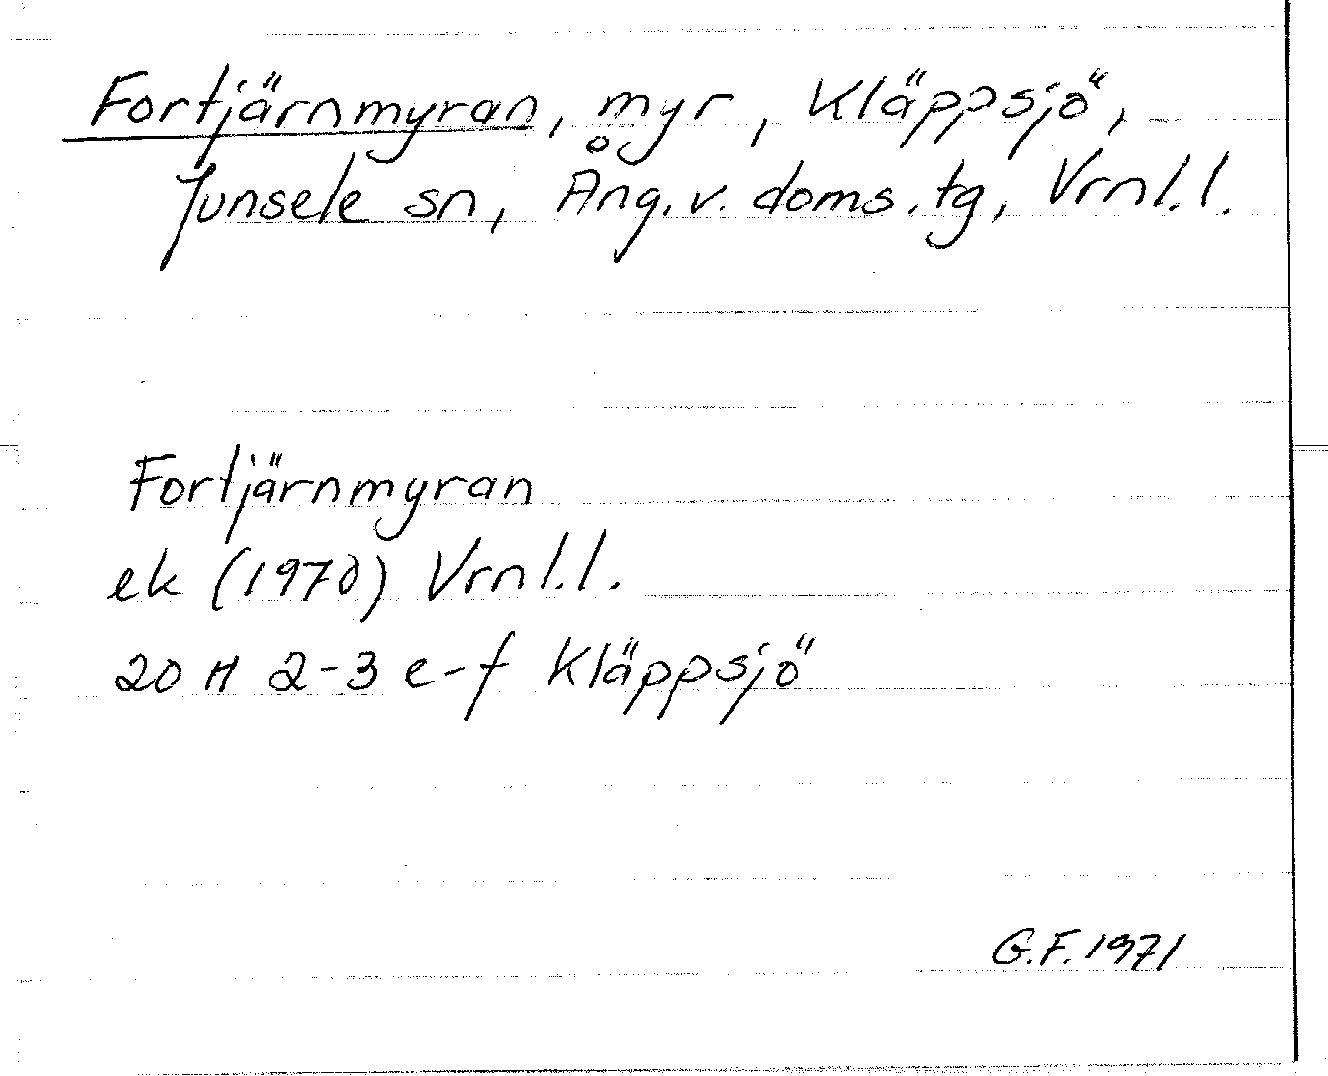 Fortjärnmyran, myr, Kläppsjö,
Junsele sn, Ång. v. doms. tg, Vrnl. l.
Fortjärnmyran
ek (1970) Vrnl. l.
20 H 2-3 e-f Kläppsjö
G.F. 1971